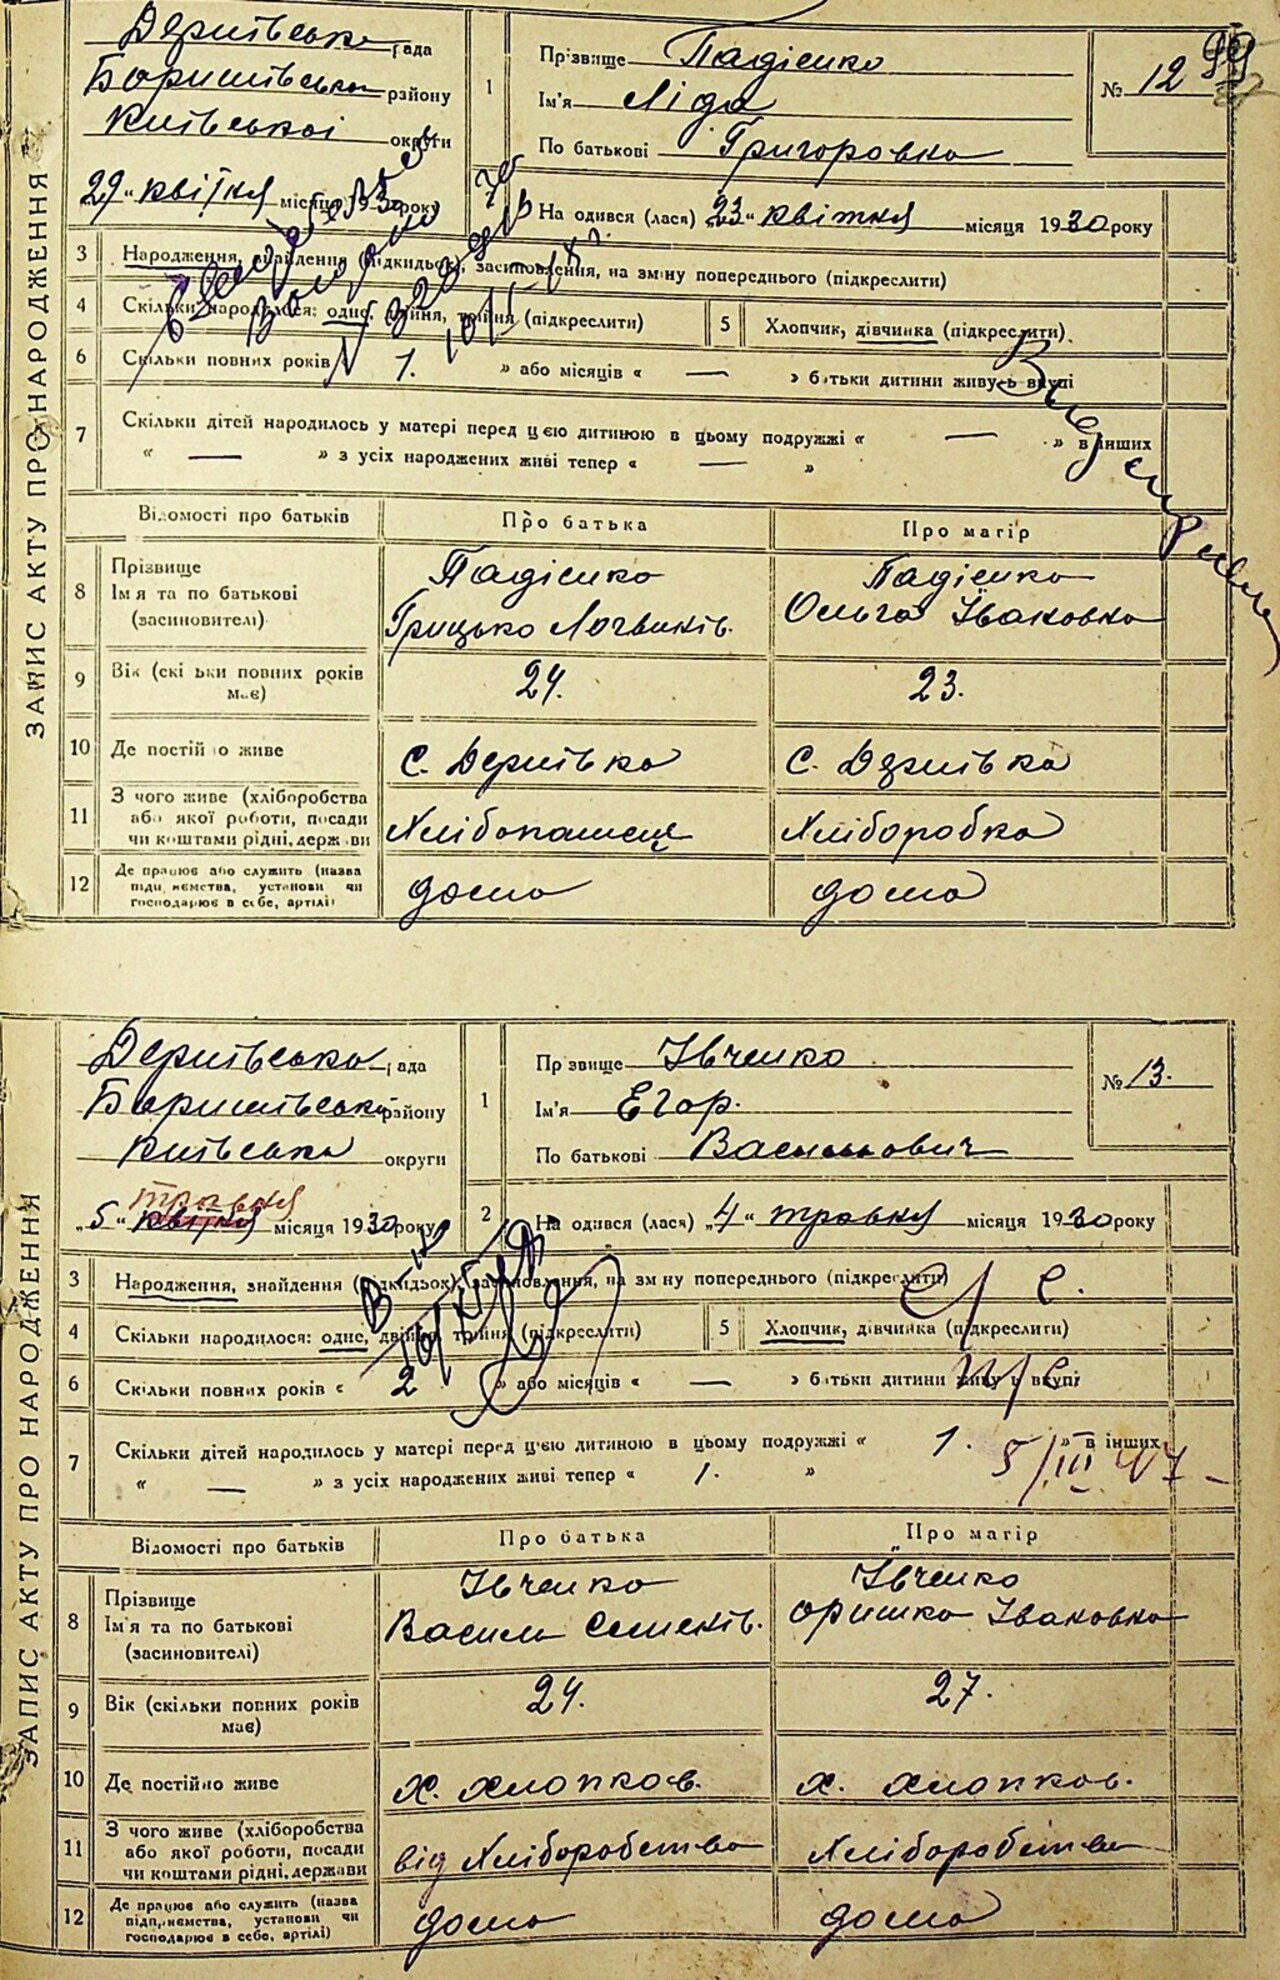 ЗАПИС АКТУ ПРО НАРОДЖЕННЯ
Дернівська рада
Баришівська району
Київської округи
29 квітня місяця 1930 року
1
Прізвище Падієнко
Ім'я Ліда
По батькові Григоровна
№ 12
99
2 На одився (лася) „23“ квітня місяця 1930 року
3 Народження, знайдення (підкидьок), засиновлення, на зміну попереднього (підкреслити)
4 Скільки народилося: одне, двійня, трійня (підкреслити) 5 Хлопчик, дівчинка (підкреслити)
6 Скільки повних років 1. » або місяців « — » батьки дитини живуть вкупі
7 Скільки дітей народилось у матері перед цією дитиною в цьому подружжі « — » в інших
« — » з усіх народжених живі тепер « — »
Відомості про батьків Про батька Про матір
8 Прізвище Падієнко Падієнко
Ім'я та по батькові Грицько Логвинів. Ольга Івановна
(засиновителі)
9 Вік (скільки повних років має) 24. 23.
10 Де постійно живе с. Дернівка с. Дернівка
11 З чого живе (хліборобства
або якої роботи, посади Хлібопашець Хліборобка
чи коштами рідні, держави
12 Де працює або служить (назва
підприємства, установи чи дома дома
господарює в себе, артілі)
ЗАПИС АКТУ ПРО НАРОДЖЕННЯ
Дернівська рада
Баришівська району
Київська округи
травня
„5“ квітня місяця 1930 року
1
Прізвище Івченко
Ім'я Егор.
По батькові Васильович
№ 13.
2 На одився (лася) „4“ травня місяця 1930 року
3 Народження, знайдення (підкидьок), засиновлення, на зміну попереднього (підкреслити)
4 Скільки народилося: одне, двійня, трійня (підкреслити) 5 Хлопчик, дівчинка (підкреслити)
6 Скільки повних років « 2 » або місяців « — » батьки дитини живуть вкупі
7 Скільки дітей народилось у матері перед цією дитиною в цьому подружжі « 1. » — в інших
« — » з усіх народжених живі тепер « 1. »
5/III 47
Відомості про батьків Про батька Про матір
8 Прізвище Івченко Івченко
Ім'я та по батькові Василь Семенів. Оришка Івановна
(засиновителі)
9 Вік (скільки повних років має) 24. 27.
10 Де постійно живе х. Хлопков. х. Хлопков.
11 З чого живе (хліборобства
або якої роботи, посади від Хліборобства Хліборобства
чи коштами рідні, держави
12 Де працює або служить (назва
підприємства, установи чи дома дома
господарює в себе, артілі)